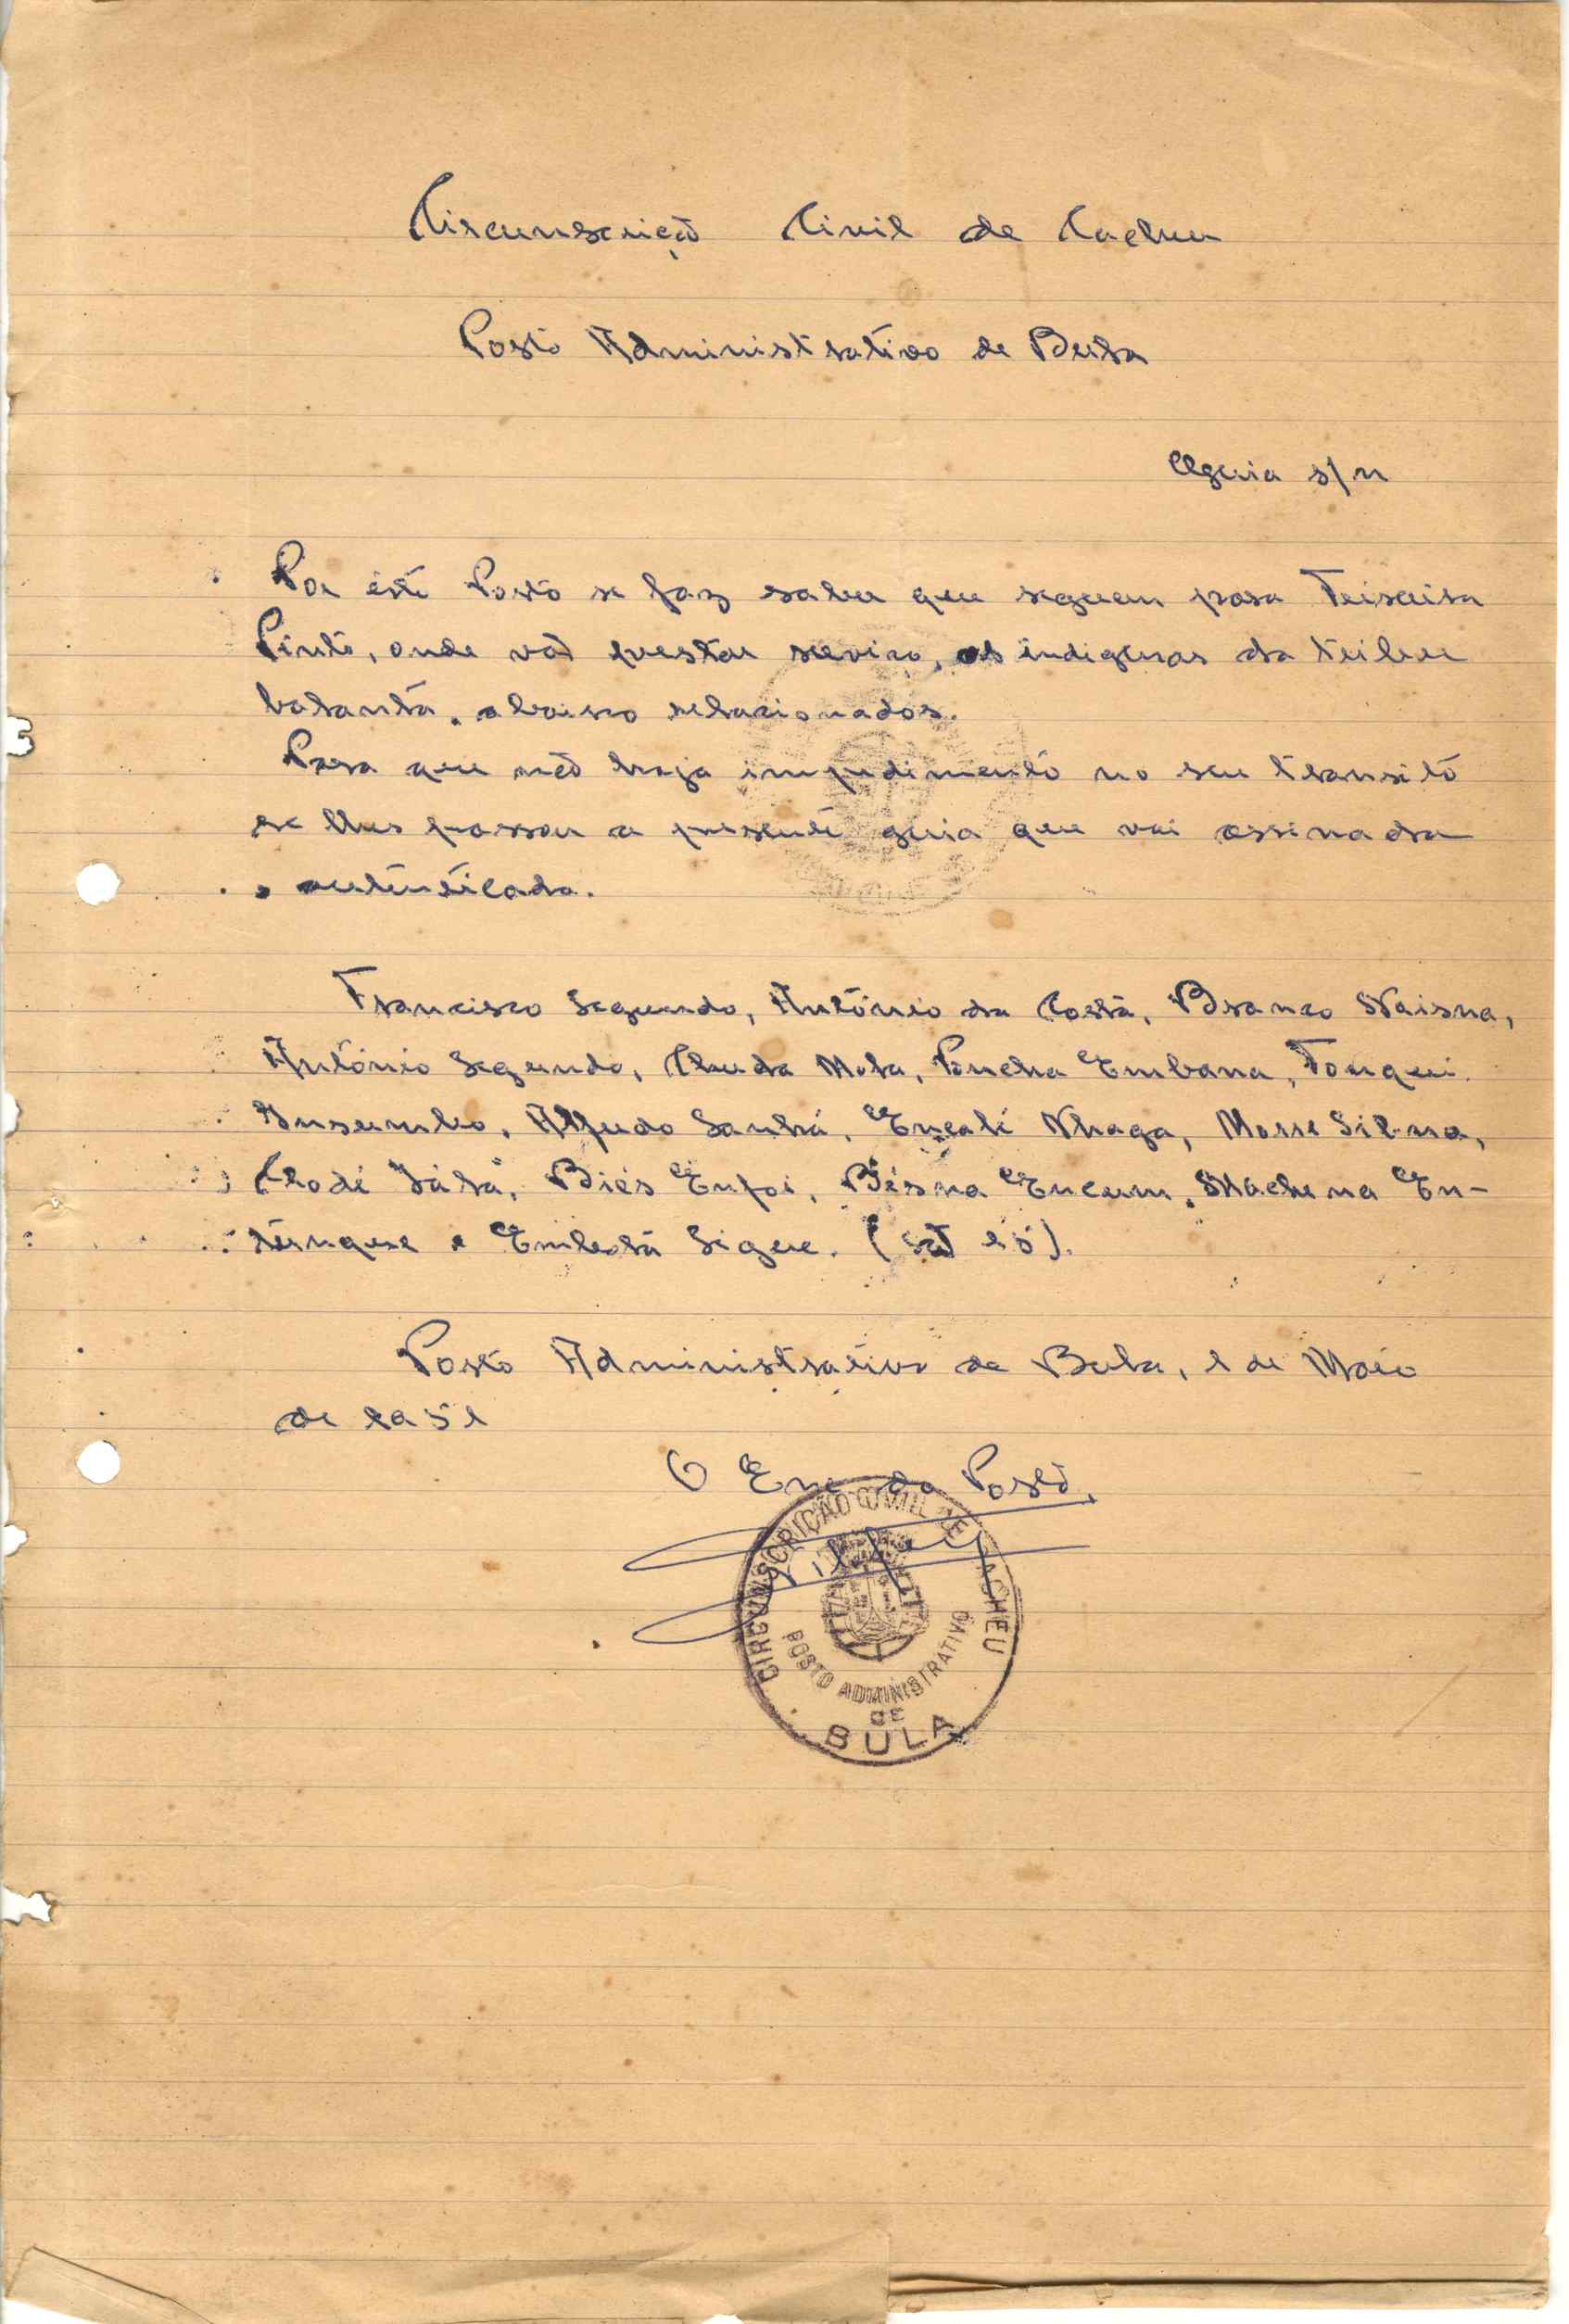 Circunscrição Civil de Cacheu
Posto Administrativo de Bula
Guia s/n
Por êste Posto se faz saber que seguem para Teixeira
Pinto, onde vão prestar serviço, os indigenas da tribu
balanta, abaixo relacionados.
Para que não haja impedimento no seu transito
se lhes passou a presente guia que vai assinada
e autenticada.
Francisco Segundo, António da Costa, Branco Naisna,
António Segundo, Chuda Mota, Poncha Embana, Tonqui
Insumbo, Alfredo Sanhá, Encalé Nhaga, Morre Silna,
Clodé Sátà, Biés Enfoi, Bésna Encum, Machena En-
tungue e Embotá Sigue. (São 15).
Posto Administrativo de Bula, 1 de Maio
de 1951
O Enc do Posto,
CIRCUNSCRIÇÃO CIVIL DE CACHEU
POSTO ADMINISTRATIVO
DE
BULA